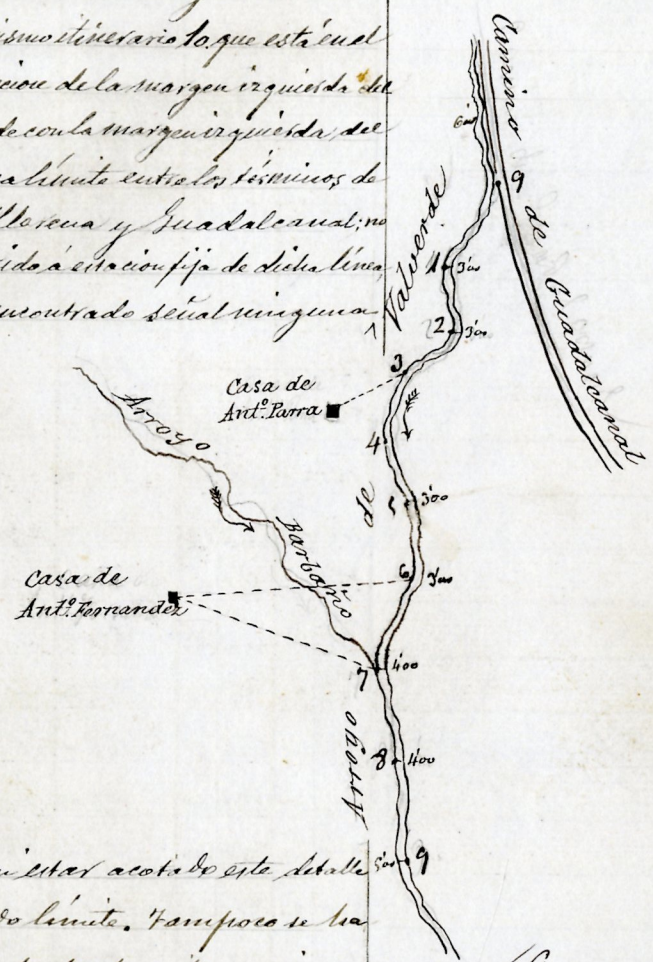 ismo itinerario lo que está en el
cion de la margen izquierda del
de con la margen izquierda del
a límite entre los términos de
Llerena y Guadalcanal; no
ido á estacion fija de dicha línea,
ncontrado señal ninguna
Camino de Guadalcanal
9
Valverde
1 3'00
2 3'00
3
Casa de
Antº. Parra
4
Arroyo Barbaño
de
5 3'00
6 3'00
Casa de
Antº. Fernandez
7 4'00
Arroyo
8 4'00
5'00 9
estar acotado este detalle
do límite. Tampoco se ha